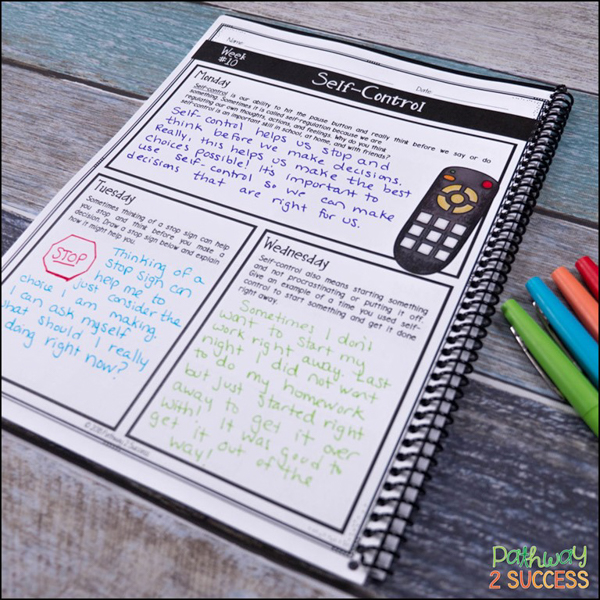 Name
Date
Week
#10
Self-Control
Monday
Self-control is our ability to hit the pause button and really think before we say or do
something. Sometimes it is called self-regulation because we are
regulating our own thoughts, actions, and feelings. Why do you think
self-control is an important skill in school, at home, and with friends?
Self-control helps us stop and
think before we make decisions.
Really, this helps us make the best
choices possible! It's important to
use self-control so we can make
decisions that are right for us.
Tuesday
Sometimes thinking of a stop sign can help
you stop and think before you make a
decision. Draw a stop sign below and explain
how it might help you.
STOP
Thinking of a
stop sign can
help me to
just consider the
choice I am making.
I can ask myself
what should I really
doing right now?
Wednesday
Self-control also means starting something
and not procrastinating or putting it off.
Give an example of a time you used self-
control to start something and get it done
right away.
Sometimes I don't
want to start my
work right away. Last
night I did not want
to do my homework
but just started right
away to get it over
with! It was good to
get it out of the
way!
Pathway 2 Success
Pathway
2 SUCCESS